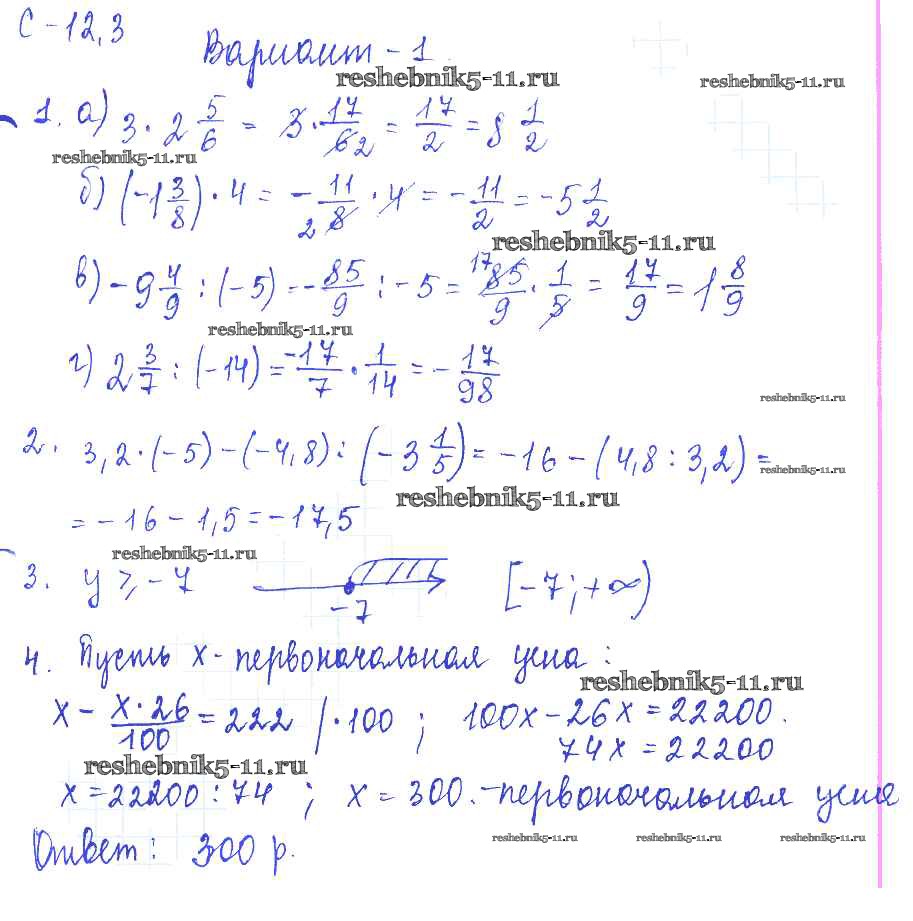 С – 12,3
Вариант – 1.
reshebnik5-11.ru
reshebnik5-11.ru
1. а) 3 · 2 5/6 = 3 · 17/6 2 = 17/2 = 8 1/2
reshebnik5-11.ru
б) (-1 3/8) · 4 = - 11/8 2 · 4 = - 11/2 = -5 1/2
reshebnik5-11.ru
в) -9 4/9 : (-5) = - 85/9 : -5 = 17 85/9 · 1/5 = 17/9 = 1 8/9
reshebnik5-11.ru
г) 2 3/7 : (-14) = -17/7 · 1/14 = - 17/98
reshebnik5-11.ru
2. 3,2 · (-5) – (-4,8) : (-3 1/5) = -16 – (4,8 : 3,2) =
reshebnik5-11.ru
reshebnik5-11.ru
= -16 – 1,5 = -17,5
reshebnik5-11.ru
3. y ⩾ -7 -7 [-7; +∞)
4. Пусть x - первоначальная цена :
reshebnik5-11.ru
x – x · 26/100 = 222 / · 100 ; 100x – 26x = 22200.
74x = 22200
reshebnik5-11.ru
x = 22200 : 74 ; x = 300. – первоначальная цена
reshebnik5-11.ru
reshebnik5-11.ru
reshebnik5-11.ru
Ответ : 300 р.